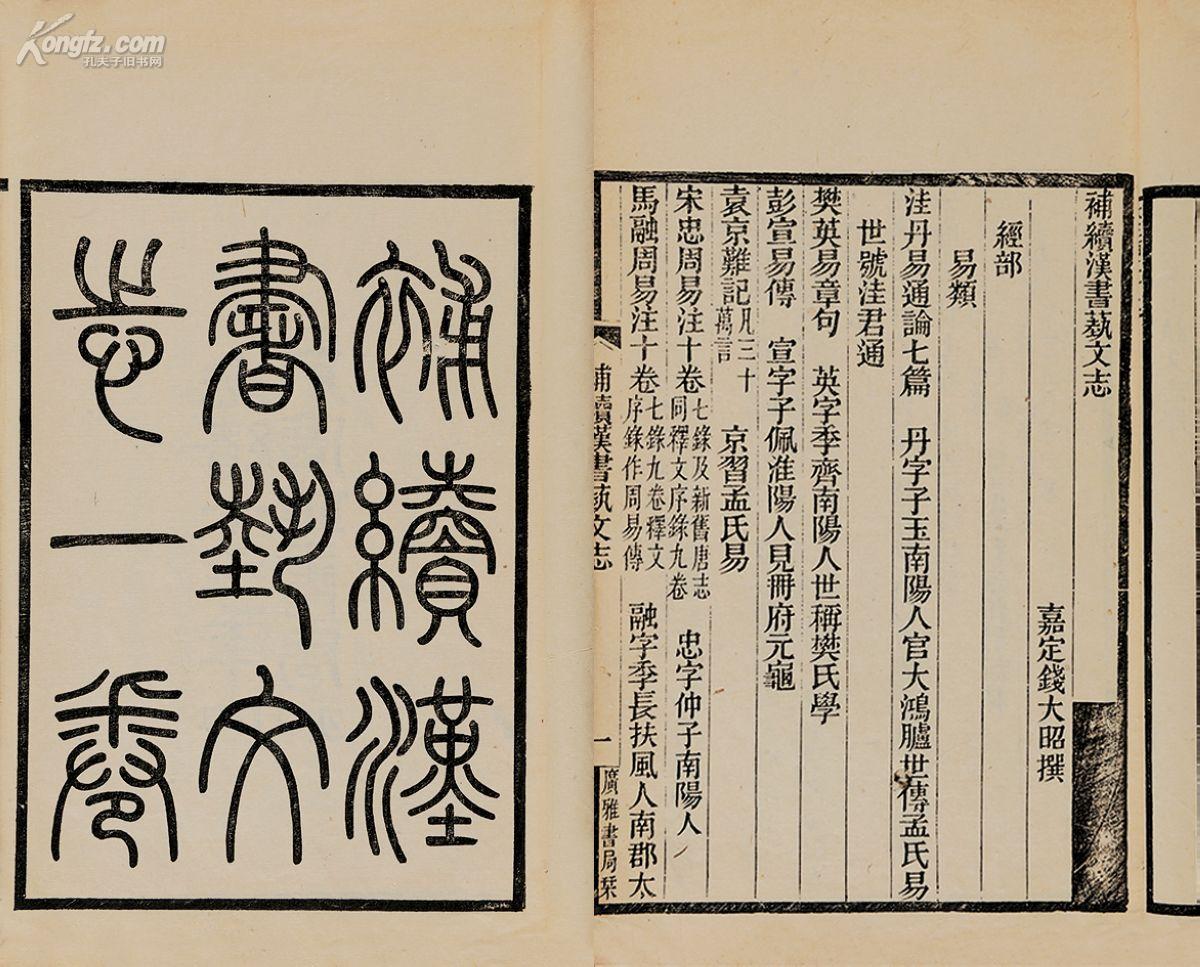 Kongfz.com
孔夫子旧书网
補續漢書藝文志
嘉定錢大昭撰
經部
易類
洼丹易通論七篇　丹字子玉南陽人官大鴻臚世傳孟氏易
世號洼君通
樊英易章句　英字季齊南陽人世稱樊氏學
彭宣易傳　宣字子佩淮陽人見冊府元龜
袁京難記凡三十萬言　京習孟氏易
宋忠周易注十卷七錄及新舊唐志同釋文序錄九卷　忠字仲子南陽人
馬融周易注十卷七錄九卷釋文序錄作周易傳　融字季長扶風人南郡太
補續漢書藝文志　一　廣雅書局栞
補續漢
書埶文
志一卷